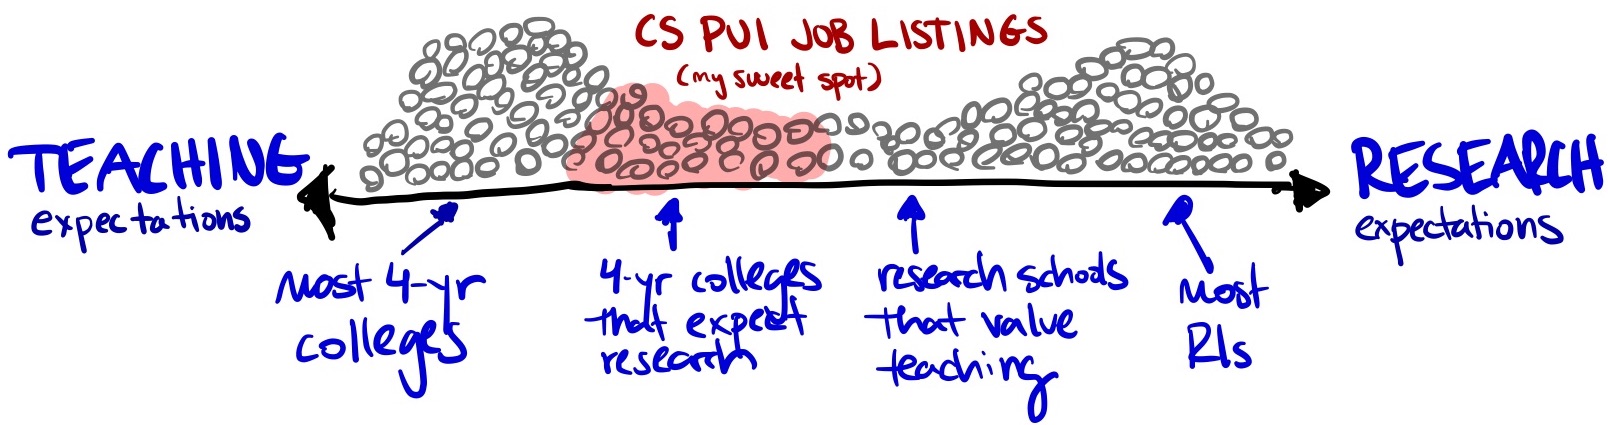 CS PUI JOB LISTINGS
(my sweet spot)
TEACHING
expectations
RESEARCH
expectations
most 4-yr
colleges
4-yr colleges
that expect
research
research schools
that value
teaching
most
R1s